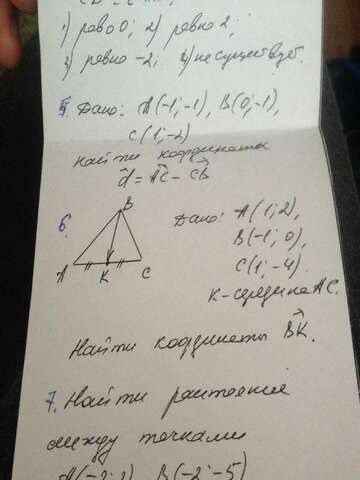 1) равно 0; 2) равно 2;
3) равно -2; 4) не существует.
5. Дано: A(-1;-1), B(0;-1),
C(1;-2)
Найти координаты
d = AC - CB
6.
B
A K C
Дано: A(1;2),
B(-1; 0),
C(1; -4).
K-середина AC.
Найти координаты BK.
7. Найти расстояние
между точками
A(-2;2) B(-2;-5)